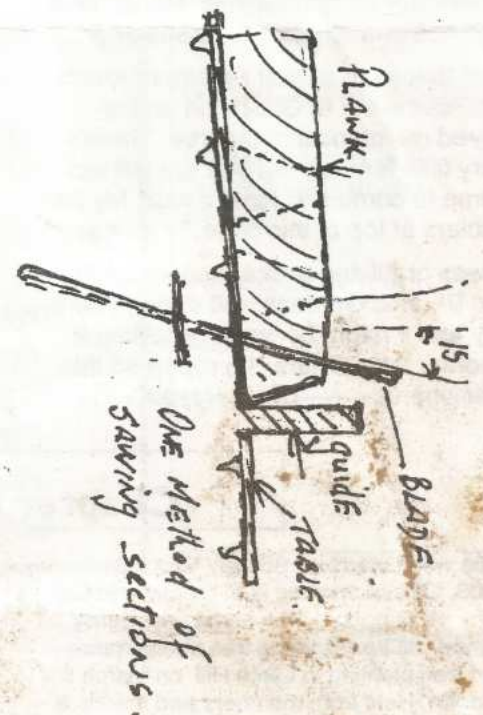 PLANK
15
BLADE
guide
TABLE.
ONE Method of
SAWING sections.